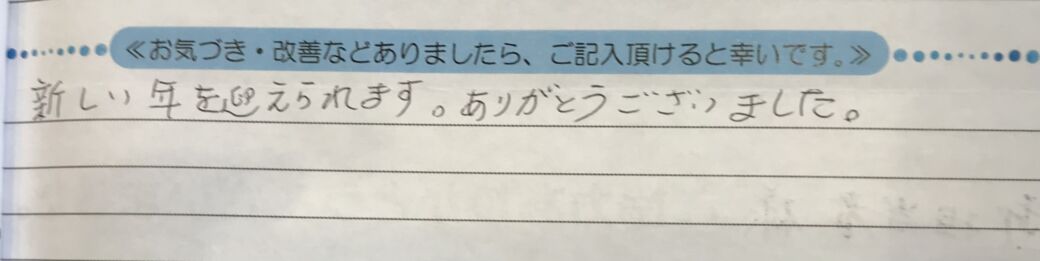 ≪お気づき・改善などありましたら、ご記入頂けると幸いです。≫
新しい年を迎えられます。ありがとうございました。